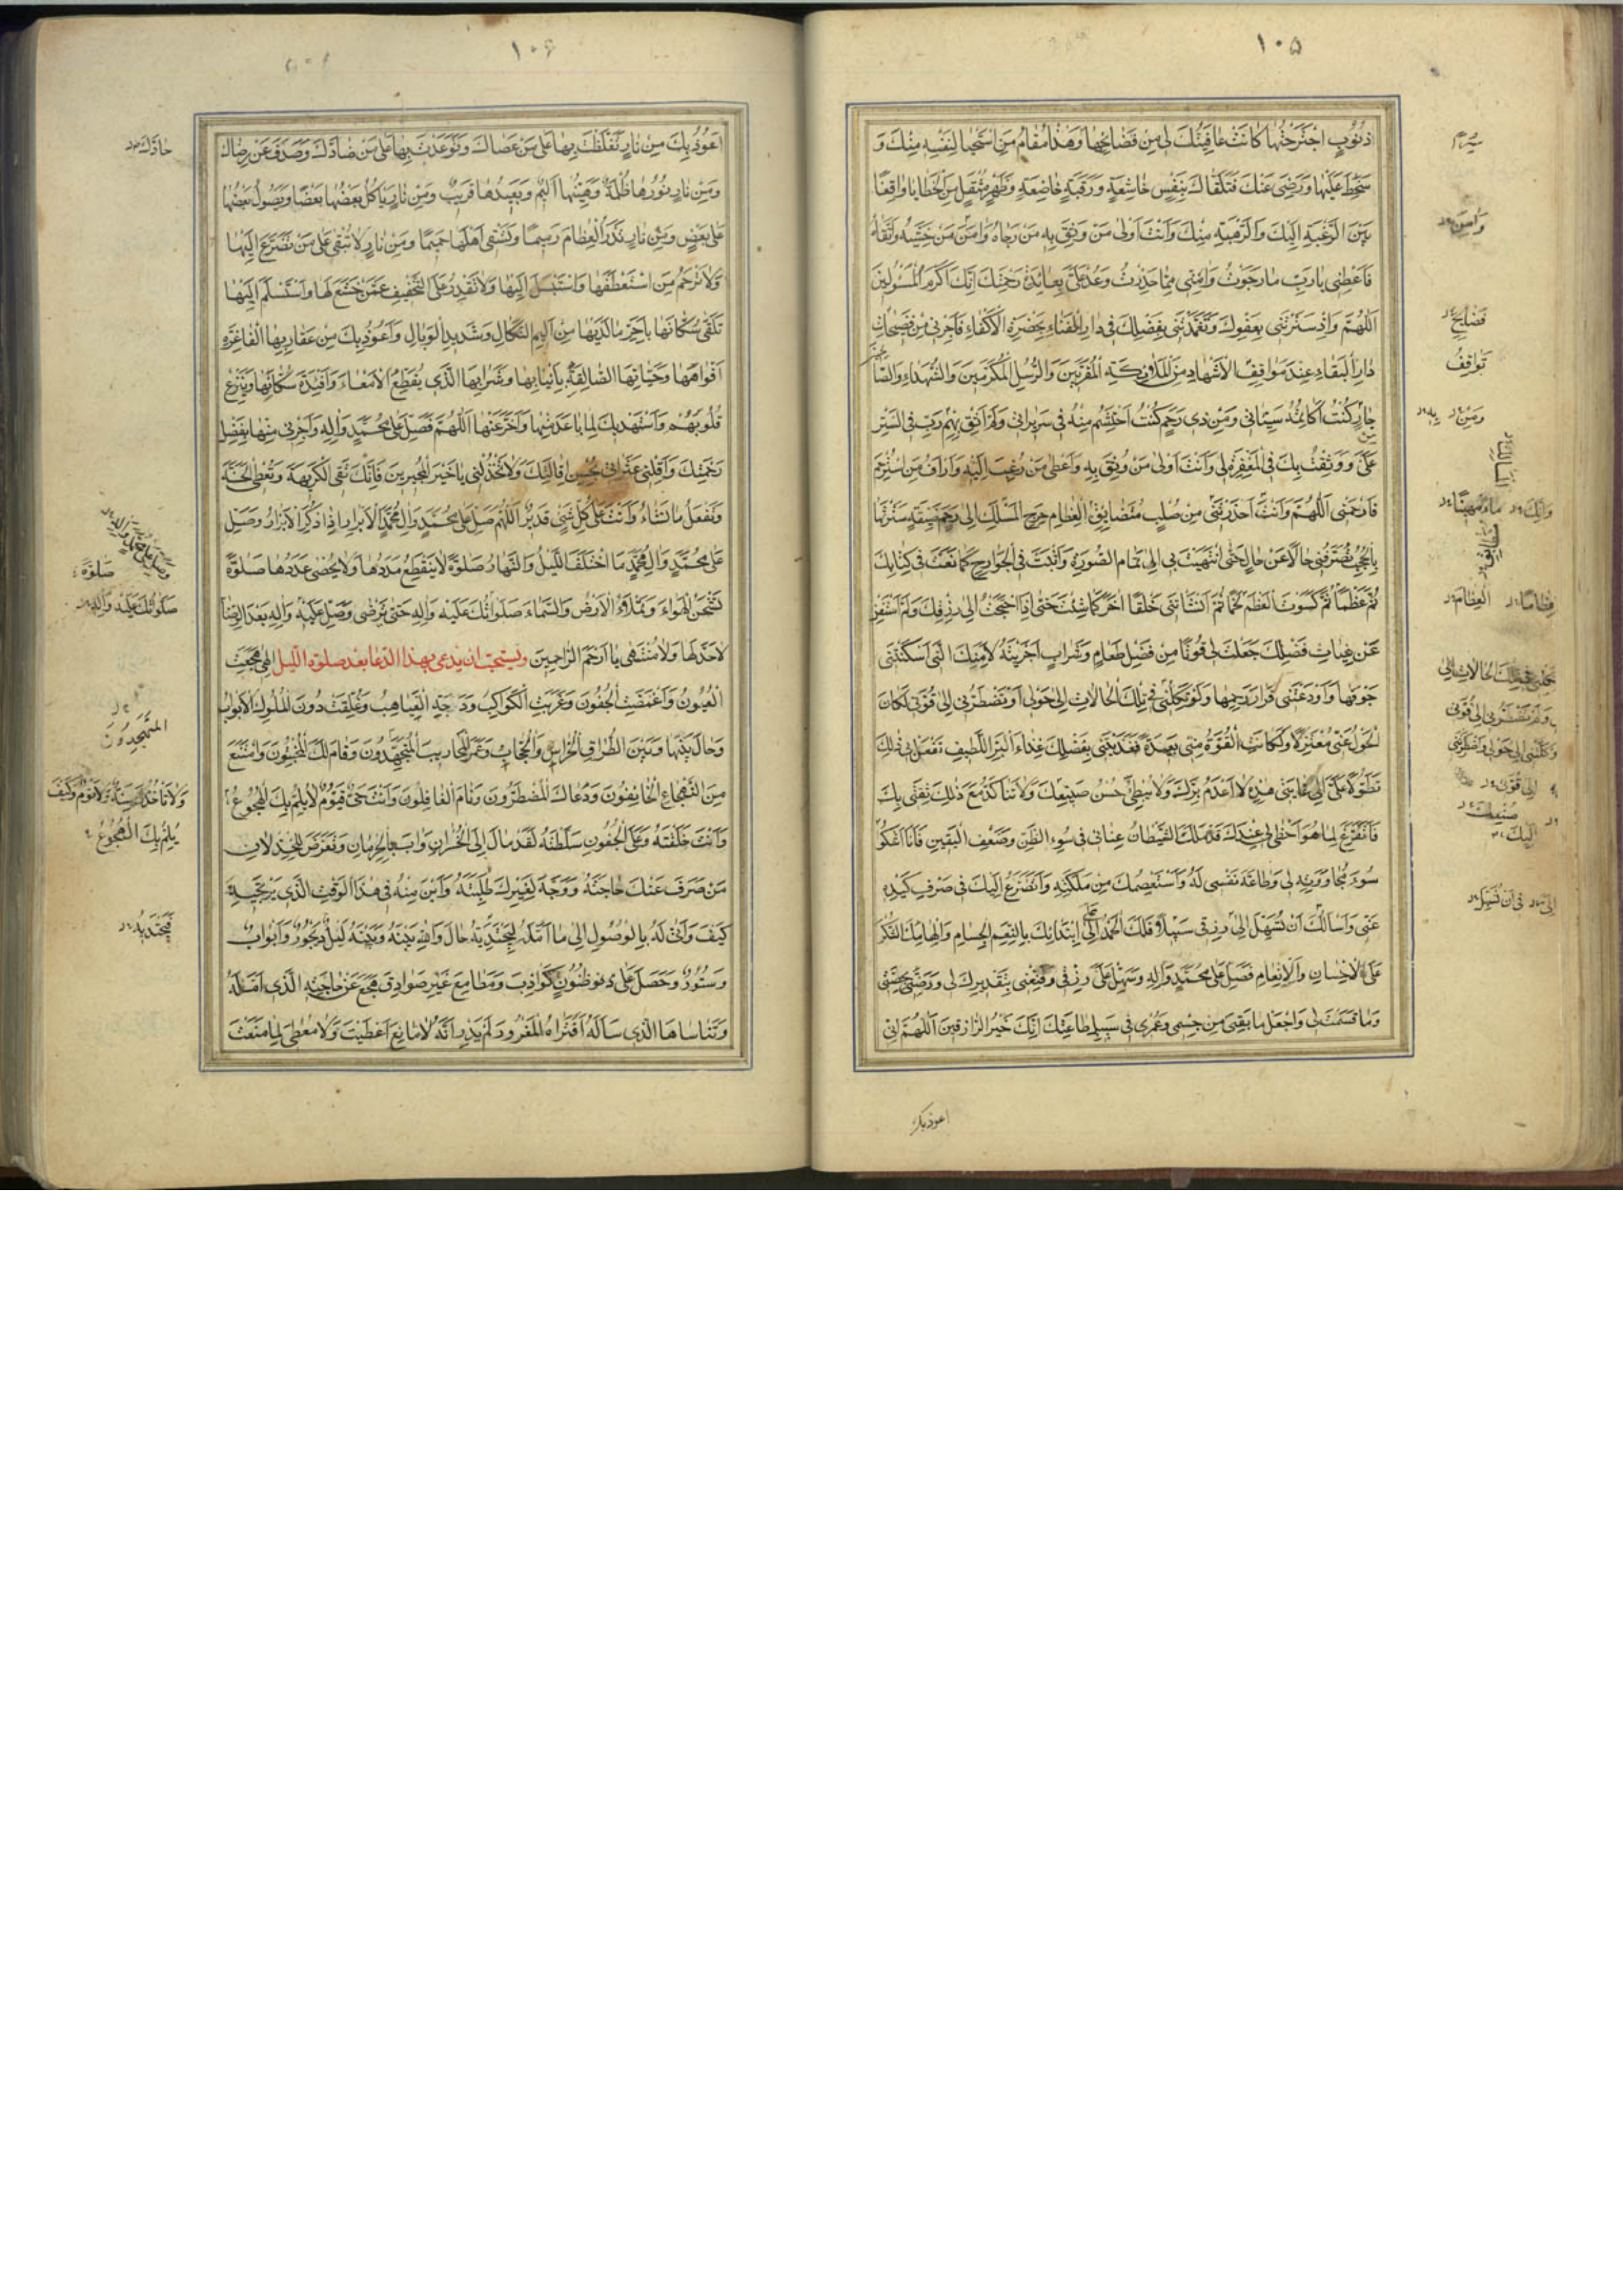 ١٠٥
ذنُوبٍ اجْتَرَحْتُهَا كَانَتْ عَافِيَتُكَ لِى مِنْ فَضَائِحِهَا وَهٰذَا مَقَامُ مَنِ اسْتَحْيَا لِنَفْسِهِ مِنْكَ وَ
سَخِطَ عَلَيْهَا وَرَضِىَ عَنْكَ فَتَلَقَّاكَ بِنَفْسٍ خَاشِعَةٍ وَرَقَبَةٍ خَاضِعَةٍ وَظَهْرٍ مُثْقَلٍ مِنَ الْخَطَايَا وَاقِفًا
بَيْنَ الرَّغْبَةِ اِلَيْكَ وَالرَّهْبَةِ مِنْكَ وَاَنْتَ اَوْلىٰ مَنْ وَثِقَ بِهِ مَنْ رَجَاهُ وَامَنَ مَنْ خَشِيَهُ وَاتَّقَاهُ
فَاَعْطِنِى يَا رَبِّ مَا رَجَوْتُ وَامِنِّى مِمَّا حَذِرْتُ وَعُدْ عَلَىَّ بِعَائِدَةِ رَحْمَتِكَ اِنَّكَ اَكْرَمُ الْمَسْئُولِينَ
اَللّٰهُمَّ وَاِذْ سَتَرْتَنِى بِعَفْوِكَ وَتَغَمَّدْتَنِى بِفَضْلِكَ فِى دَارِ الْفَنَاءِ بِحَضْرَةِ الْاَكْفَاءِ فَاَجِرْنِى مِنْ فَضِيحَاتِ
دَارِ الْبَقَاءِ عِنْدَ مَوَاقِفِ الْاَشْهَادِ مِنَ الْمَلَائِكَةِ الْمُقَرَّبِينَ وَالرُّسُلِ الْمُكَرَّمِينَ وَالشُّهَدَاءِ وَالصَّالحين
مِنْ جَارٍ كُنْتُ اُكَاتِمُهُ سَيِّئَاتِى وَمِنْ ذِى رَحِمٍ كُنْتُ اَحْتَشِمُ مِنْهُ فِى سَرِيرَاتِى وَلَمْ اَثِقْ بِهِمْ رَبِّ فِى السَّتْرِ
عَلَىَّ وَوَثِقْتُ بِكَ فِى الْمَغْفِرَةِ لِى وَاَنْتَ اَوْلىٰ مَنْ وُثِقَ بِهِ وَاَعْطىٰ مَنْ رُغِبَ اِلَيْهِ وَاَرْاَفُ مَنِ اسْتُرْحِمَ
فَارْحَمْنِى اَللّٰهُمَّ وَاَنْتَ اَحْدَرْتَنِى مِنْ صُلْبٍ مُتَضَايِقِ الْعِظَامِ حَرِجِ الْمَسَالِكِ اِلىٰ رَحِمٍ ضَيِّقَةٍ سَتَرْتَهَا
بِالْحُجُبِ تُصَرِّفُنِى حَالًا عَنْ حَالٍ حَتَّى انْتَهَيْتَ بِى اِلىٰ تَمَامِ الصُّورَةِ وَاَثْبَتَّ فِى الْجَوَارِحِ كَمَا نَعَتَّ فِى كِتَابِكَ
ثُمَّ عَظْمًا ثُمَّ كَسَوْتَ الْعَظْمَ لَحْمًا ثُمَّ اَنْشَاْتَنِى خَلْقًا اخَرَ كَمَا شِئْتَ حَتّٰى اِذَا احْتَجْتُ اِلىٰ رِزْقِكَ وَلَمْ اَسْتَغْنِ
عَنْ غِيَاثِ فَضْلِكَ جَعَلْتَ لِى قُوتًا مِنْ فَضْلِ طَعَامٍ وَشَرَابٍ اَجْرَيْتَهُ لِاَمَتِكَ الَّتِى اَسْكَنْتَنِى
جَوْفَهَا وَاَوْدَعْتَنِى قَرَارَ رَحِمِهَا وَلَوْ تَكِلْنِى فِى تِلْكَ الْحَالَاتِ اِلىٰ حَوْلِى اَوْ تَضْطَرُّنِى اِلىٰ قُوَّتِى لَكَانَ
الْحَوْلُ عَنِّى مُعْتَزِلًا وَلَكَانَتِ الْقُوَّةُ مِنِّى بَعِيدَةً فَغَذَوْتَنِى بِفَضْلِكَ غِذَاءَ الْبَرِّ اللَّطِيفِ تَفْعَلُ بِى ذٰلِكَ
تَطَوُّلًا عَلَىَّ اِلىٰ غَايَتِى هٰذِهِ لَا اَعْدَمُ بِرَّكَ وَلَا يُبْطِئُ حُسْنُ صَنِيعِكَ وَلَا تَتَاَكَّدُ مَعَ ذٰلِكَ ثِقَتِى بِكَ
فَاَتَفَرَّغَ لِمَا هُوَ اَحْظىٰ لِى عِنْدَكَ قَدْ مَلَكَ الشَّيْطَانُ عِنَانِى فِى سُوءِ الظَّنِّ وَضَعْفِ الْيَقِينِ فَاَنَا اَشْكُو
سُوءَ مُجَاوَرَتِهِ لِى وَطَاعَةَ نَفْسِى لَهُ وَاَسْتَعْصِمُكَ مِنْ مَلَكَتِهِ وَاَتَضَرَّعُ اِلَيْكَ فِى صَرْفِ كَيْدِهِ
عَنِّى وَاَسْاَلُكَ اَنْ تُسَهِّلَ اِلىٰ رِزْقِى سَبِيلًا فَلَكَ الْحَمْدُ عَلَى ابْتِدَائِكَ بِالنِّعَمِ الْجِسَامِ وَاِلْهَامِكَ الشُّكْرَ
عَلَى الْاِحْسَانِ وَالْاِنْعَامِ فَصَلِّ عَلىٰ مُحَمَّدٍ وَالِهِ وَسَهِّلْ عَلَىَّ رِزْقِى وَقَنِّعْنِى بِتَقْدِيرِكَ لِى وَرَضِّنِى بِحِصَّتِى
وَمَا قَسَمْتَ لِى وَاجْعَلْ مَا بَقِىَ مِنْ جِسْمِى وَعُمْرِى فِى سَبِيلِ طَاعَتِكَ اِنَّكَ خَيْرُ الرَّازِقِينَ اَللّٰهُمَّ اِنِّى
اعوذ بك
وَامِنَ
فَضَايِح
تَوَاقِفُ
وَمِنْ
وَانَّكَ
مَاءً مَهِينًا
الْعِظَامَ
اِلىٰ قُوَّتى
اِلَيْكَ
فى اَنْ تُسَهِّلَ
١٠٦
اَعُوذُ بِكَ مِنْ نَارٍ تَغَلَّظْتَ بِهَا عَلىٰ مَنْ عَصَاكَ وَتَوَعَّدْتَ بِهَا عَلىٰ مَنْ ضَادَّكَ وَصَدَفَ عَنْ رِضَاكَ
وَمِنْ نَارٍ نُورُهَا ظُلْمَةٌ وَهَيِّنُهَا اَلِيمٌ وَبَعِيدُهَا قَرِيبٌ وَمِنْ نَارٍ يَاْكُلُ بَعْضُهَا بَعْضًا وَيَصُولُ بَعْضُهَا
عَلىٰ بَعْضٍ وَمِنْ نَارٍ تَذَرُ الْعِظَامَ رَمِيمًا وَتَسْقِى اَهْلَهَا حَمِيمًا وَمِنْ نَارٍ لَا تُبْقِى عَلىٰ مَنْ تَضَرَّعَ اِلَيْهَا
وَلَا تَرْحَمُ مَنِ اسْتَعْطَفَهَا وَاسْتَبْسَلَ اِلَيْهَا وَلَا تَقْدِرُ عَلَى التَّخْفِيفِ عَمَّنْ خَشَعَ لَهَا وَاسْتَسْلَمَ اِلَيْهَا
تَلْقىٰ سُكَّانَهَا بِاَحَرِّ مَا لَدَيْهَا مِنْ اَلِيمِ النَّكَالِ وَشَدِيدِ الْوَبَالِ وَاَعُوذُ بِكَ مِنْ عَقَارِبِهَا الْفَاغِرَةِ
اَفْوَاهُهَا وَحَيَّاتِهَا الصَّالِقَةِ بِاَنْيَابِهَا وَشَرَابِهَا الَّذِى يُقَطِّعُ الْاَمْعَاءَ وَاَفْئِدَةَ سُكَّانِهَا وَيَنْزِعُ
قُلُوبَهُمْ وَاَسْتَهْدِيكَ لِمَا بَاعَدَ مِنْهَا وَاَخَّرَ عَنْهَا اَللّٰهُمَّ فَصَلِّ عَلىٰ مُحَمَّدٍ وَالِهِ وَاَجِرْنِى مِنْهَا بِفَضْلِ
رَحْمَتِكَ وَاَقِلْنِى عَثَرَاتِى بِحُسْنِ اِقَالَتِكَ وَلَا تَخْذُلْنِى يَا خَيْرَ الْمُجِيرِينَ فَاِنَّكَ تَقِى الْكَرِيهَةَ وَتُعْطِى الْحَسَنَةَ
وَتَفْعَلُ مَا تَشَاءُ وَاَنْتَ عَلىٰ كُلِّ شَىْءٍ قَدِيرٌ اَللّٰهُمَّ صَلِّ عَلىٰ مُحَمَّدٍ وَالِ مُحَمَّدٍ الْاَبْرَارِ اِذَا ذُكِرَ الْاَبْرَارُ وَصَلِّ
عَلىٰ مُحَمَّدٍ وَالِ مُحَمَّدٍ مَا اخْتَلَفَ اللَّيْلُ وَالنَّهَارُ صَلٰوةً لَا يَنْقَطِعُ مَدَدُهَا وَلَا يُحْصىٰ عَدَدُهَا صَلٰوةً
تَشْحَنُ الْهَوَاءَ وَتَمْلَاُ الْاَرْضَ وَالسَّمَاءَ صَلَوَاتُكَ عَلَيْهِ وَالِهِ حَتّٰى يَرْضىٰ وَصَلِّ عَلَيْهِ وَالِهِ بَعْدَ الرِّضَا
لَا حَدَّ لَهَا وَلَا مُنْتَهىٰ يَا اَرْحَمَ الرَّاحِمِينَ ويستحبّ ان يدعى بهذا الدّعا بعد صلوة اللّيل اِلٰهِى هَجَعَتِ
الْعُيُونُ وَاغْمَضَتِ الْجُفُونُ وَغَرَبَتِ الْكَوَاكِبُ وَدَجَتِ الْغَيَاهِبُ وَغُلِّقَتْ دُونَ الْمُلُوكِ الْاَبْوَابُ
وَحَالَ بَيْنَهَا وَبَيْنَ الطُّرَّاقِ الْحُرَّاسُ وَالْحُجَّابُ وَعَمَرَ الْمَحَارِيبَ الْمُتَهَجِّدُونَ وَقَامَ لَكَ الْمُخْبِتُونَ وَامْتَنَعَ
مِنَ التَّهْجَاعِ الْخَائِفُونَ وَدَعَاكَ الْمُضْطَرُّونَ وَنَامَ الْغَافِلُونَ وَاَنْتَ حَىٌّ قَيُّومٌ لَا يُلِمُّ بِكَ الْهُجُوعُ
وَاَنْتَ خَلَقْتَهُ وَعَلَى الْجُفُونِ سَلَّطْتَهُ لَقَدْ مَالَ اِلَى الْخُسْرَانِ وَابَ بِالْحِرْمَانِ وَتَعَرَّضَ لِلْخِذْلَانِ
مَنْ صَرَفَ عَنْكَ حَاجَتَهُ وَوَجَّهَ لِغَيْرِكَ طَلِبَتَهُ وَاَيْنَ مِنْهُ فِى هٰذَا الْوَقْتِ الَّذِى يَرْتَجِيهِ
كَيْفَ وَاَنّٰى لَهُ بِالْوُصُولِ اِلىٰ مَا اَمَّلَهُ لِيَجْتَدِيَهُ حَالَ وَاللّٰهِ بَيْنَهُ وَبَيْنَهُ لَيْلٌ دَيْجُورٌ وَاَبْوَابٌ
وَسُتُورٌ وَحَصَلَ عَلىٰ ظُنُونٍ كَوَاذِبَ وَمَطَامِعَ غَيْرِ صَوَادِقَ هَجَعَ عَنْ حَاجَتِهِ الَّذِى اَمَّلَهُ
وَتَنَاسَاهَا الَّذِى سَاَلَهُ اَفَتَرَاهُ الْمَغْرُورَ لَمْ يَدْرِ اَنَّهُ لَا مَانِعَ لِمَا اَعْطَيْتَ وَلَا مُعْطِىَ لِمَا مَنَعْتَ
حَادَّكَ
صَلٰوةً
صَلَوَاتُكَ عَلَيْهِ وَالِهِ
المُتَهَجِّدُونَ
وَلَا تَاْخُذُكَ سِنَةٌ وَلَا نَوْمٌ وَكَيْفَ
يُلِمُّ بِكَ الْهُجُوعُ